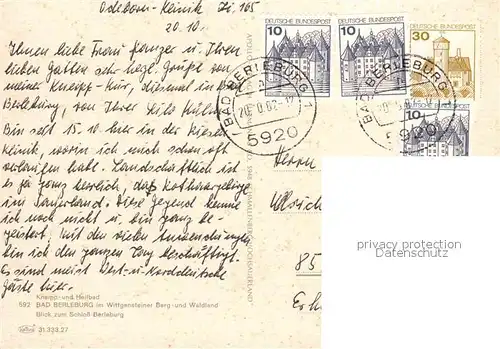 Odeborn-Klinik Zi. 165
20.10.
Ihnen liebe Frau und Ihren
lieben Gatten sehr hzgl. Grüße von
meiner Kneipp-Kur, diesmal in Bad
Berleburg, von Ihrer
Bin seit 15.10. hier in der Riesen
Klinik, worin ich mich schon oft
verlaufen habe. Landschaftlich ist
es ja ganz herrlich, das Rothaargebirge
im Sauerland. Diese Gegend kenne
ich noch nicht u. bin ganz be-
geistert. Mit den vielen Anwendungen
bin ich den ganzen Tag beschäftigt.
Es sind meist West- u. Norddeutsche
Gäste hier.
Kneipp- und Heilbad
592 BAD BERLEBURG im Wittgensteiner Berg- und Waldland
Blick zum Schloß Berleburg
31.333.27
DEUTSCHE BUNDESPOST
10
DEUTSCHE BUNDESPOST
10
DEUTSCHE BUNDESPOST
30
10
BAD BERLEBURG 1
5920
BAD BERLEBURG
5920
Herrn
85
privacy protection
Datenschutz